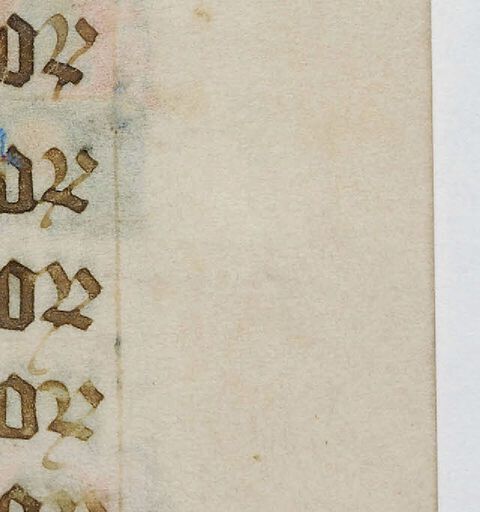 or
or
or
or